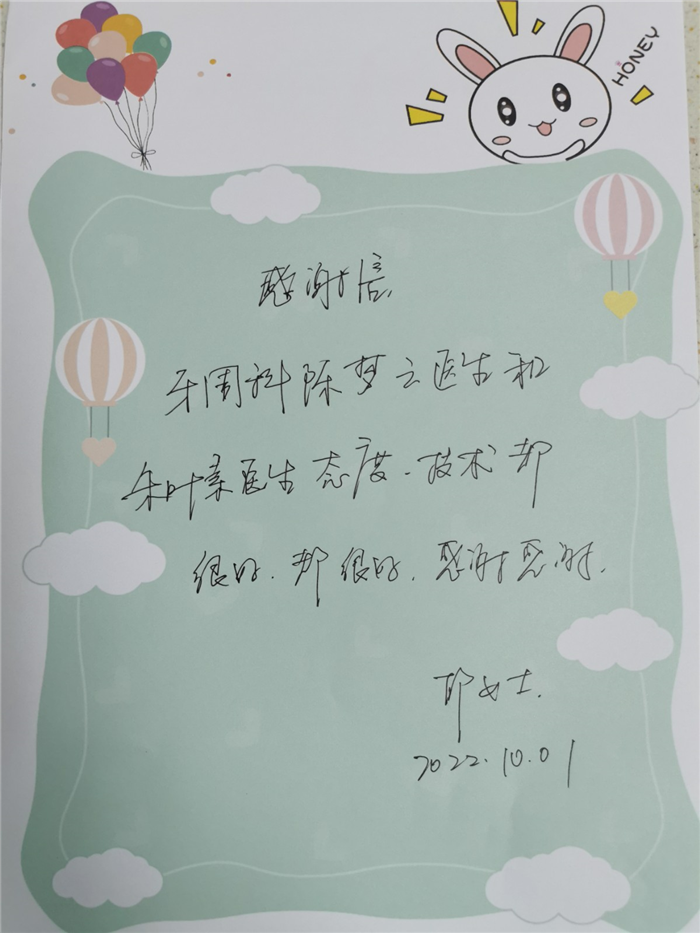 HONEY
感谢信
牙周科陈梦云医生和
朱叶素医生态度、技术都
很好、都很好,感谢感谢.
女士.
2022.10.01